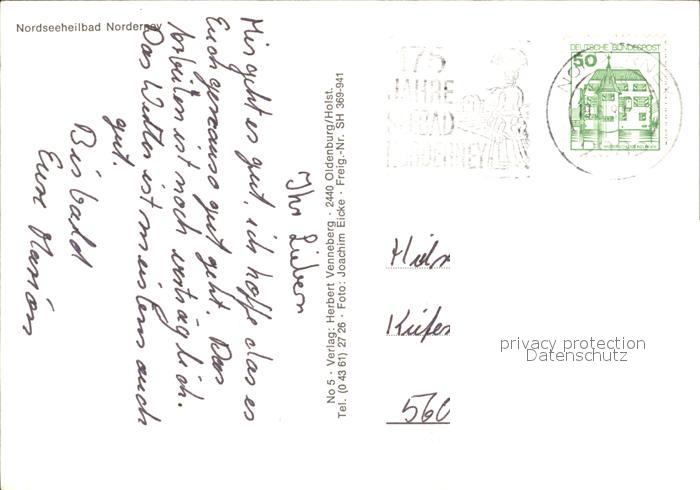 Nordseeheilbad Norderney
Ihr Lieben
Mir geht es gut, ich hoffe das es
Euch genauso gut geht. Das
Arbeiten ist noch erträglich.
Das Wetter ist meistens auch
gut.
Bis bald
Eure Marion
No 5 · Verlag: Herbert Venneberg · 2440 Oldenburg/Holst.
Tel. (0 43 61) 27 26 · Foto: Joachim Eicke · Freig.-Nr. SH 369-941
175
JAHRE
SEEBAD
NORDERNEY
DEUTSCHE BUNDESPOST
50
560
privacy protection
Datenschutz